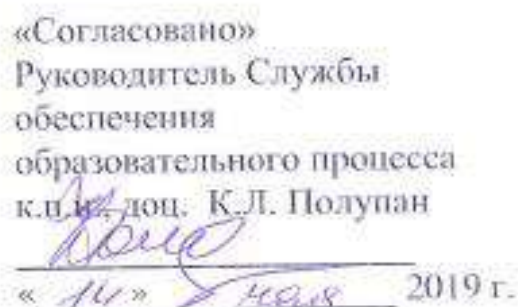 «Согласовано»
Руководитель Службы
обеспечения
образовательного процесса
к.п.н., доц. К.Л. Полупан
« 14 » мая 2019 г.